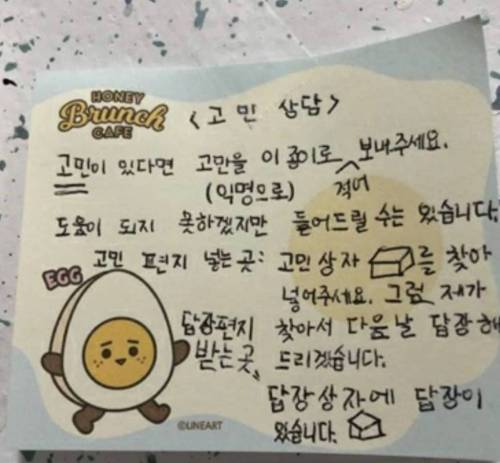 HONEY
Brunch
CAFE
<고민 상담>
고민이 있다면 고민을 이 종이로 적어 보내주세요.
(익명으로)
도움이 되지 못하겠지만 들어드릴 수는 있습니다.
고민 편지 넣는 곳: 고민상자 를 찾아
넣어주세요. 그럼 제가
EGG
답장편지 찾아서 다음날 답장해
받는곳 드리겠습니다.
답장상자에 답장이
있습니다.
©LINEART